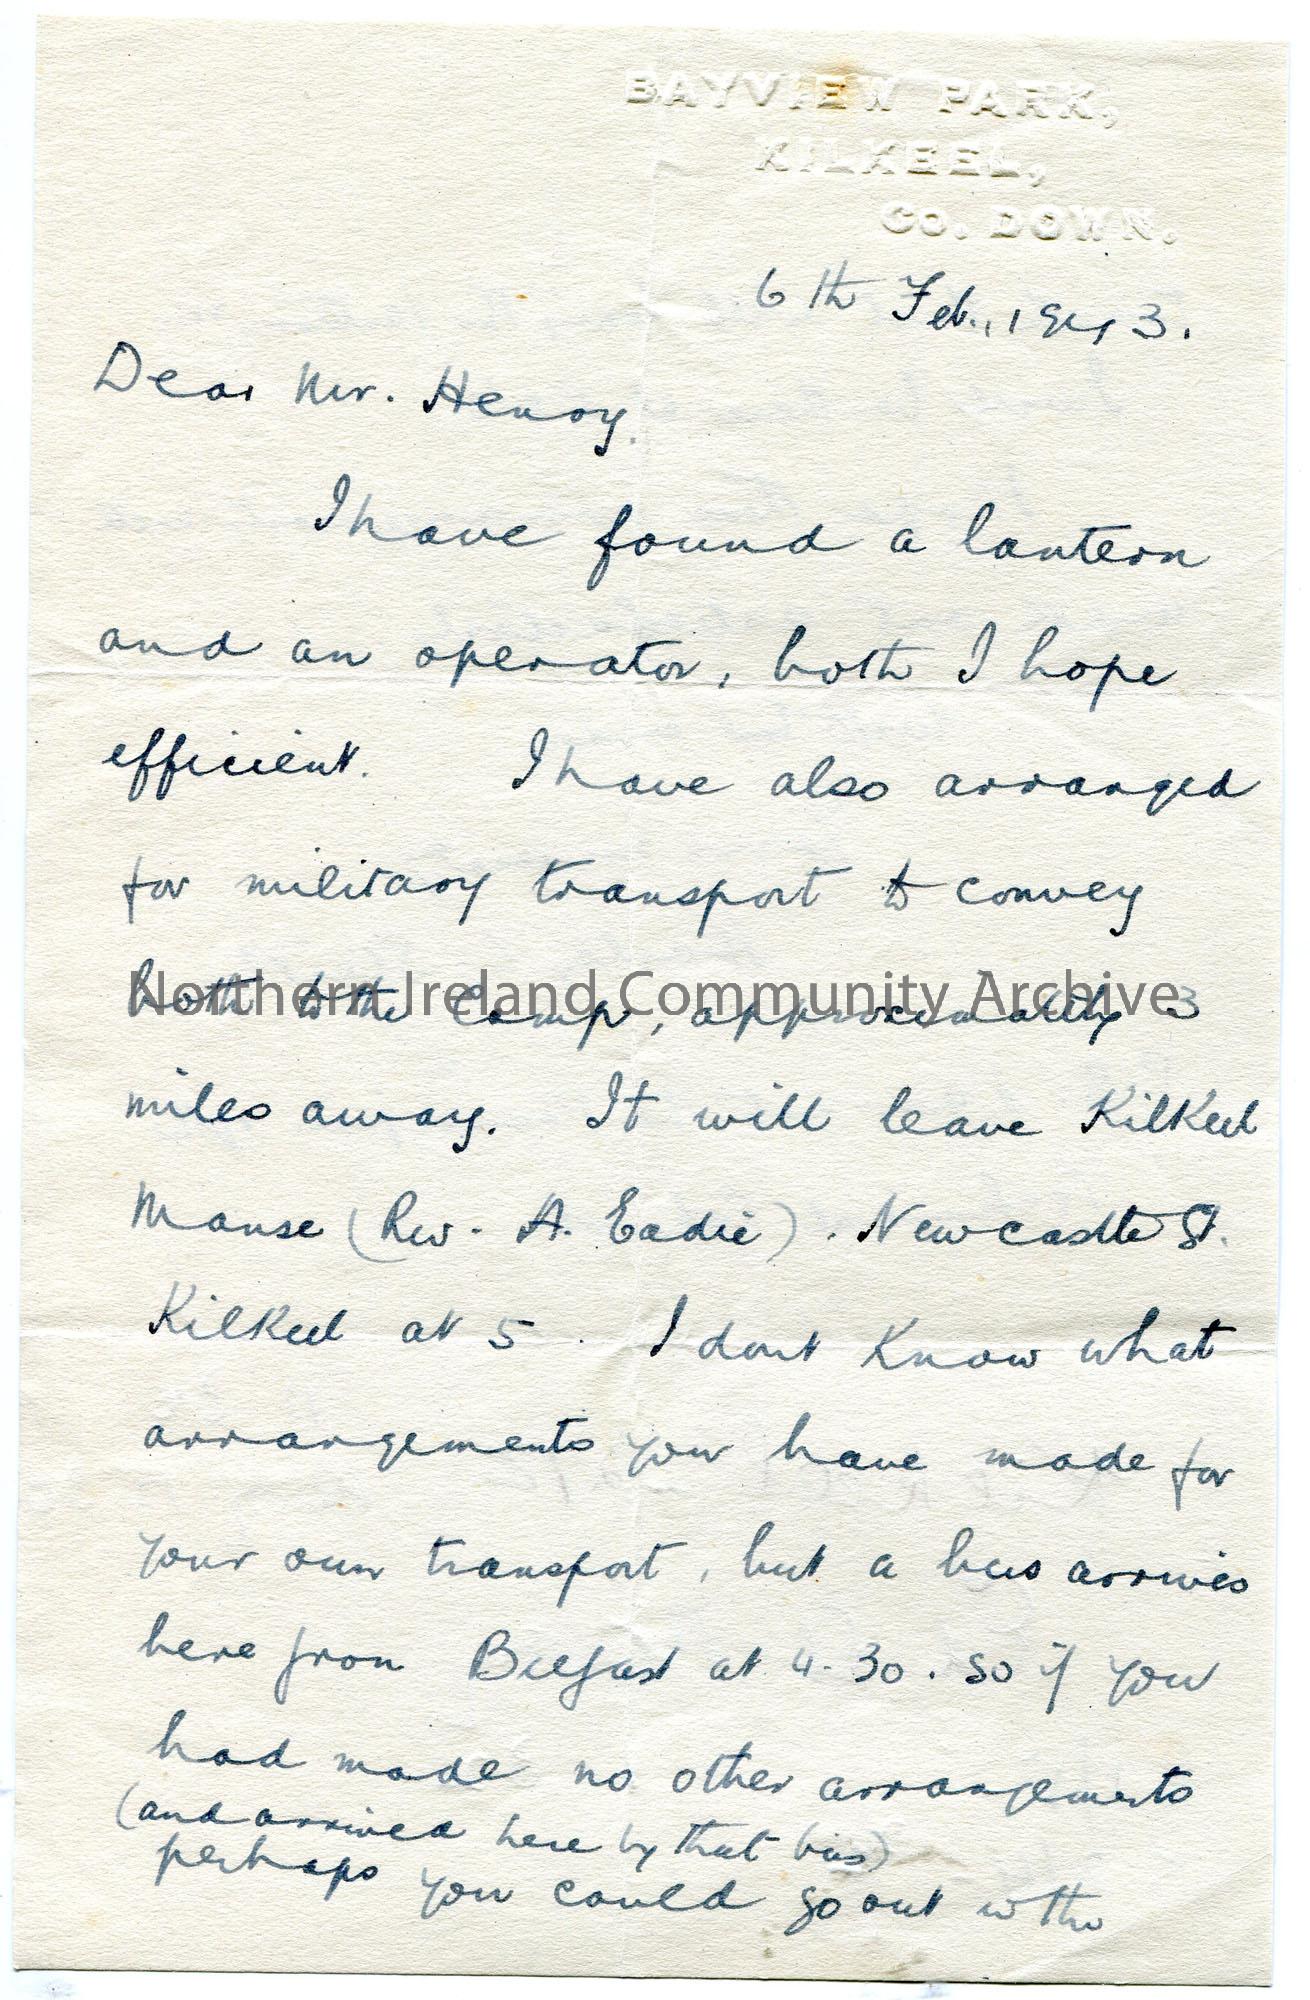 BAYVIEW PARK,
KILKEEL,
CO. DOWN.
6th Feb., 1943.
Dear Mr. Henry.
I have found a lantern
and an operator, both I hope
efficient. I have also arranged
for military transport to convey
both to the Camp, approximately 3
miles away. It will leave Kilkeel
Manse (Rev. A. Eadie). Newcastle St.
Kilkeel at 5. I dont know what
arrangements you have made for
your own transport, but a bus arrives
here from Belfast at 4.30. so if you
had made no other arrangements
(and arrived here by that bus)
perhaps you could go out with
Northern Ireland Community Archive